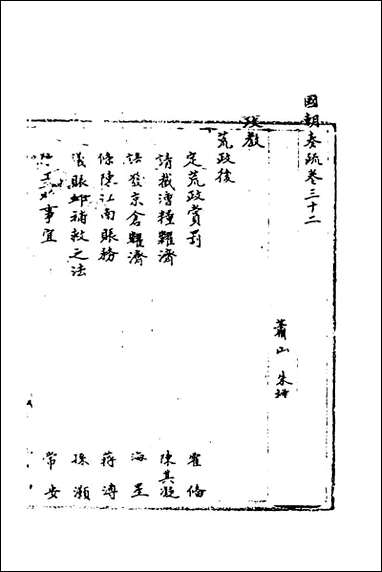 國朝奏疏卷三十二
蕭山 朱
教
荒政後
定荒政賞罰 霍備
請截漕種糶濟 陳其凝
請發京倉糶濟 海望
條陳江南賑務 蔣溥
議賑卹補救之法 孫灝
事宜 常安